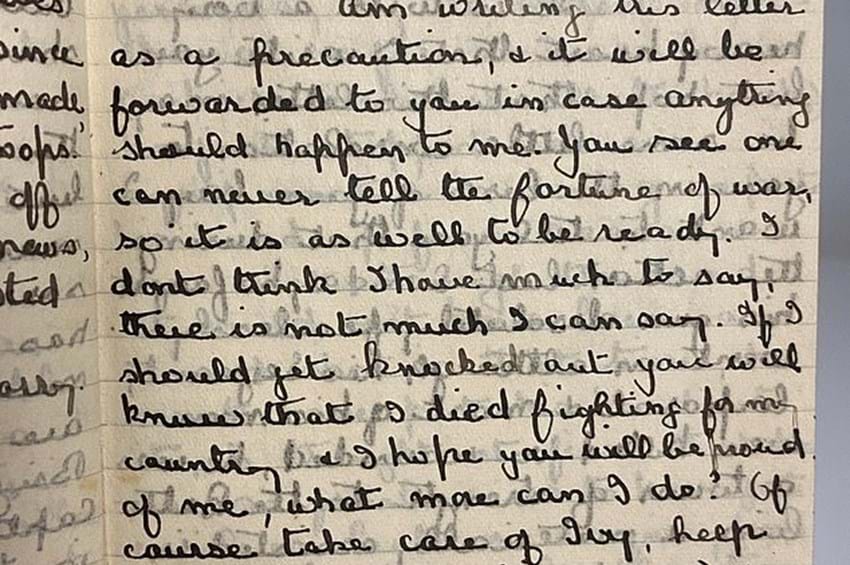 since
made
oops.'
off
news,
ted
am writing this letter
as a precaution, & it will be
forwarded to you in case anything
should happen to me. You see one
can never tell the fortune of war,
so it is as well to be ready. I
dont think I have much to say,
there is not much I can say. If I
should get knocked out you will
know that I died fighting for my
country & I hope you will be proud
of me, what more can I do? Of
course take care of Ivy, keep